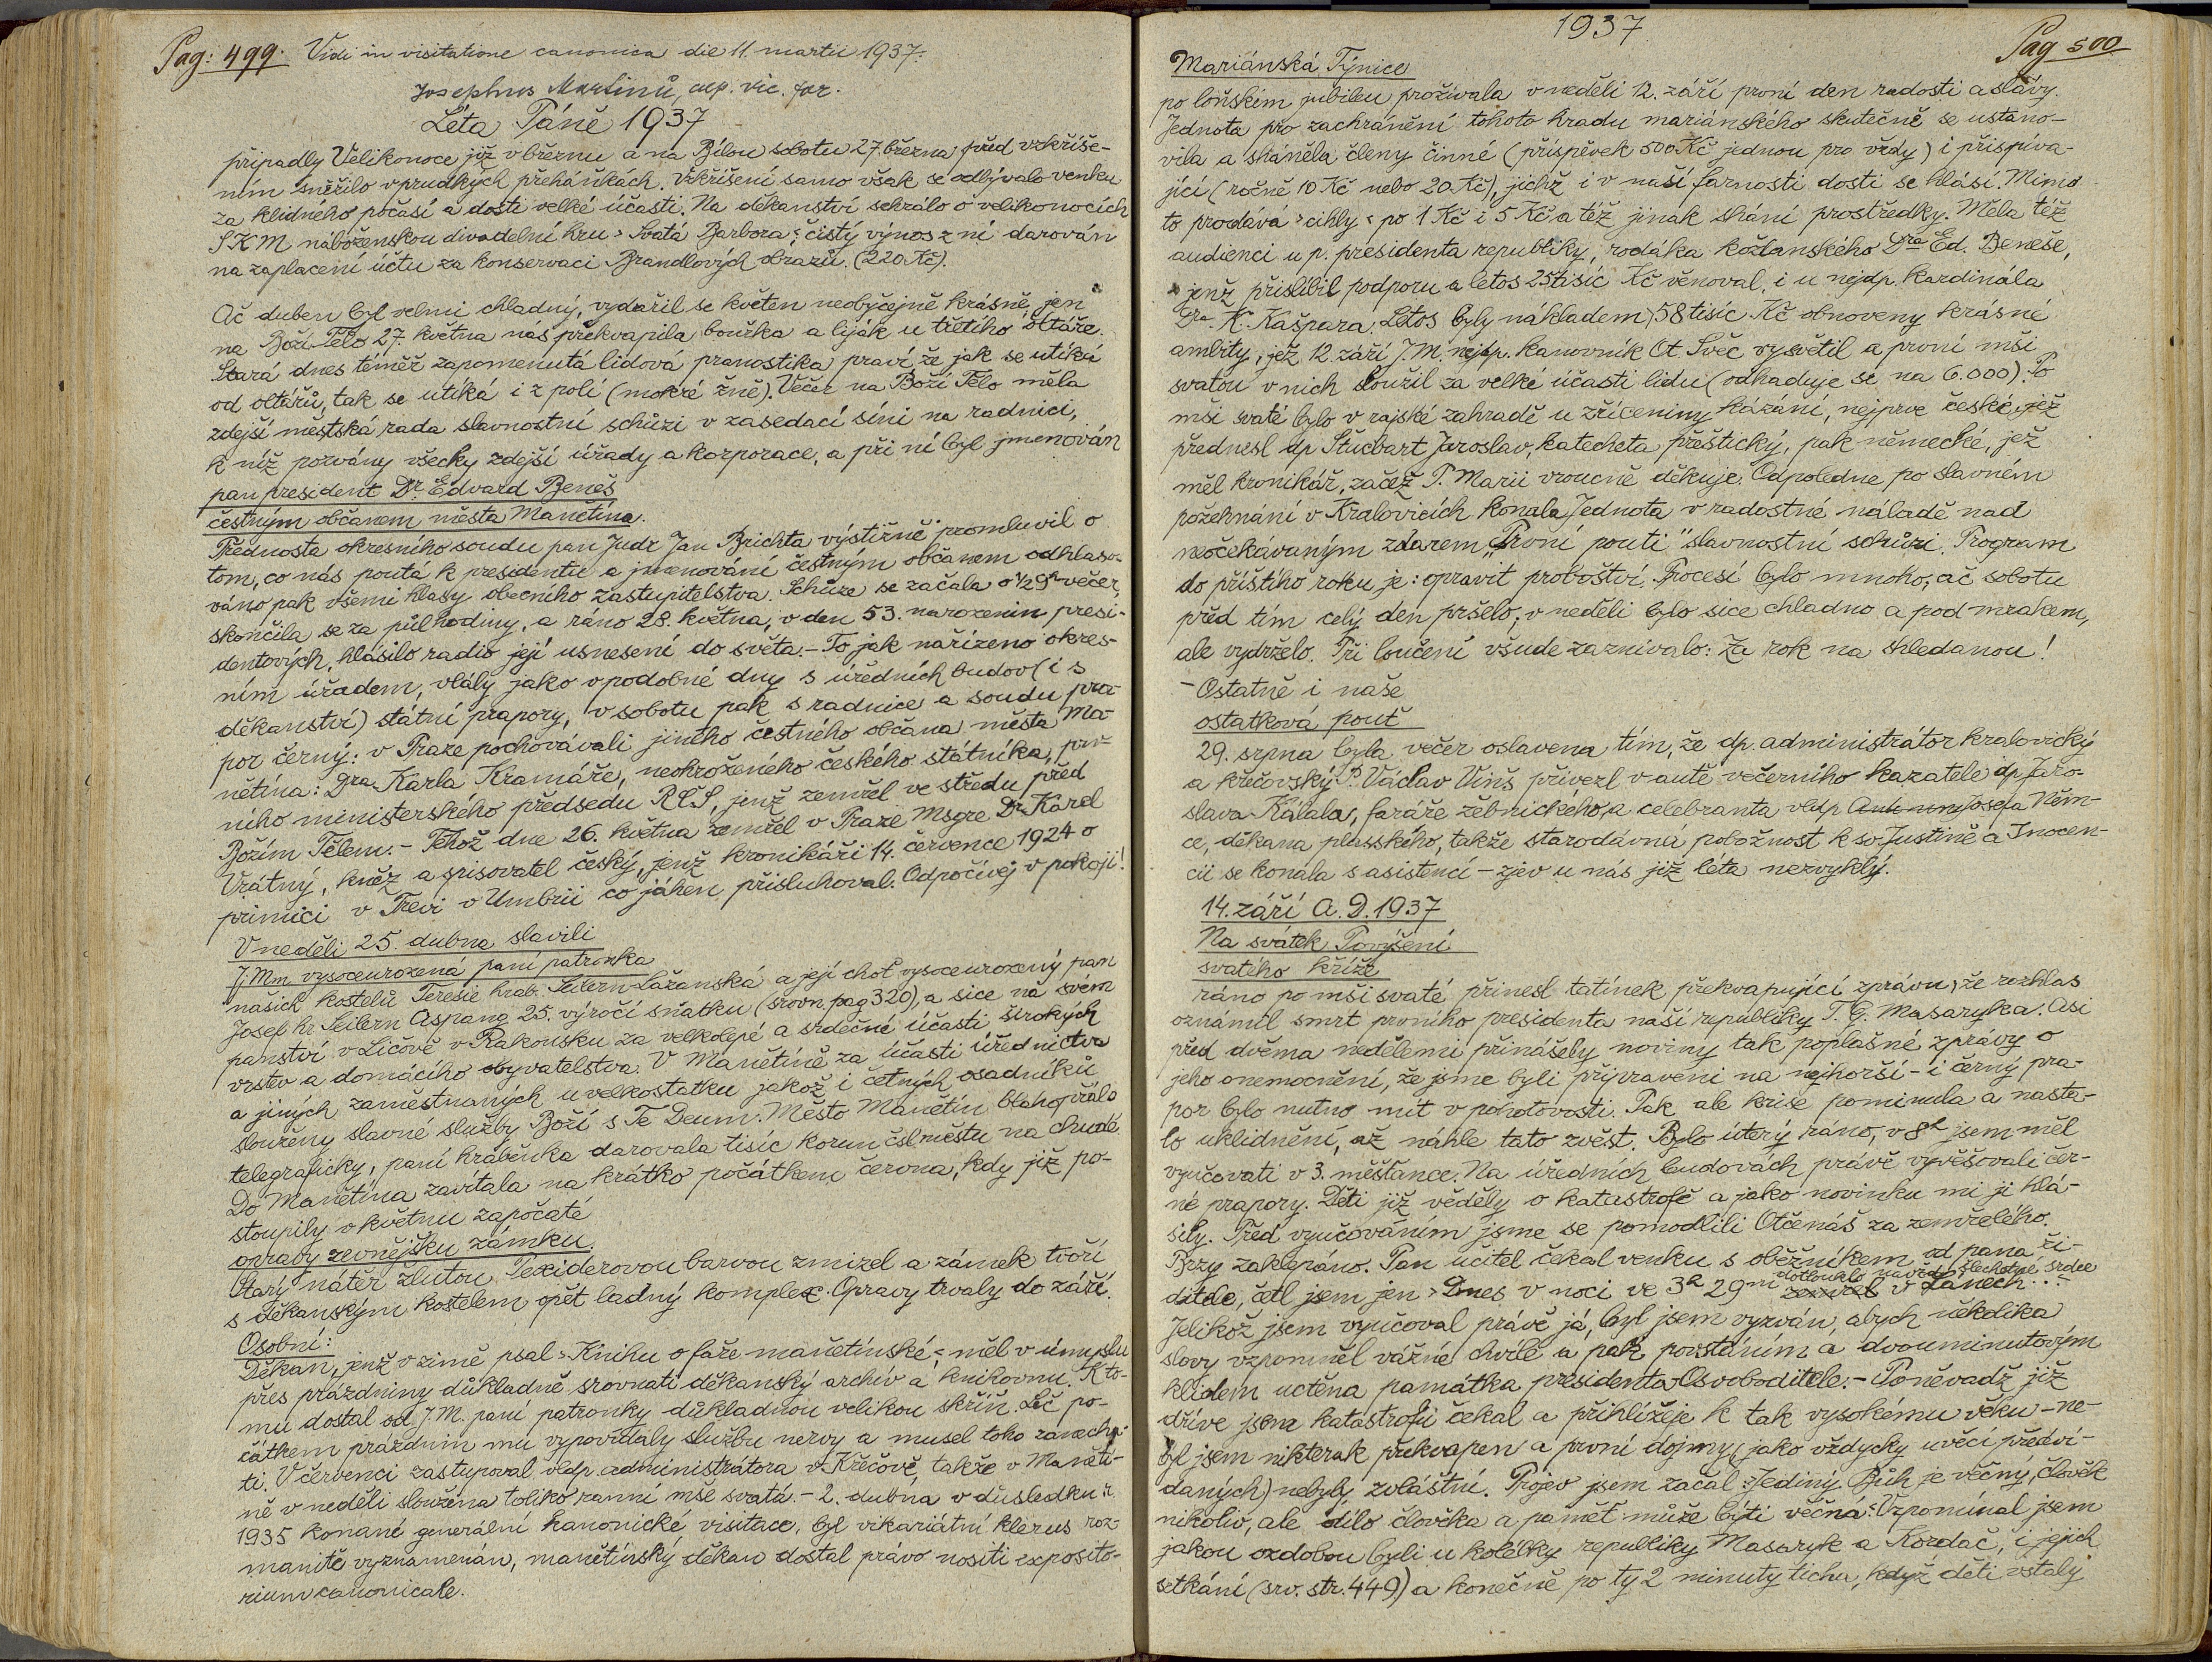 Pag: 499. Vidi in visitatione canonica die 11. martii 1937.
Josephus Martinů, vic. for.
Léta Páně 1937
připadly Velikonoce již v březnu a na Bílou sobotu 27. března před vzkříše-
ním sněžilo v prudkých přeháňkách. Vzkříšení samo však se odbývalo venku
za klidného počasí a dosti velké účasti. Na děkanství sehrálo o velikonocích
SKM náboženskou divadelní hru »Svatá Barbora«; čistý výnos z ní darován
na zaplacení účtu za konservaci Brandlových obrazů. (220 Kč).
Ač duben byl velmi chladný, vydařil se květen neobyčejně krásně, jen
na Boží Tělo 27. května nás překvapila bouřka a liják u třetího oltáře.
Stará dnes téměř zapomenutá lidová pranostika praví, že jak se utíká
od oltářů, tak se utíká i z polí (mokré žně). Večer na Boží Tělo měla
zdejší městská rada slavnostní schůzi v zasedací síni na radnici,
k níž pozvány všecky zdejší úřady a korporace, a při ní byl jmenován
pan president Dr. Edvard Beneš
čestným občanem města Manětína.
Přednosta okresního soudu pan Judr Jan Brichta výstižně promluvil o
tom, co nás poutá k presidentu a jmenování čestným občanem odhlaso-
váno pak všemi hlasy obecního zastupitelstva. Schůze se začala o 1/29h večer,
skončila se za půl hodiny, a ráno 28. května, v den 53. narozenin presi-
dentových, hlásilo radio její usnesení do světa. - To jak nařízeno okres-
ním úřadem, vlály jako v podobné dny s úředních budov (i s
děkanství) státní prapory, v sobotu pak s radnice a soudu pra-
por černý: v Praze pochovávali jiného čestného občana města Ma-
nětína: Dra Karla Kramáře, neohroženého českého státníka, prv-
ního ministerského předsedu RČS, jenž zemřel ve středu před
Božím Tělem. - Téhož dne 26. května zemřel v Praze Msgre Dr Karel
Vrátný, kněz a spisovatel český, jenž kronikáři 14. července 1924 o
primici v Trevi v Umbrii co jáhen přisluhoval. Odpočívej v pokoji!
V neděli 25. dubna slavili
J. Mm. vysoceurozená paní patronka
našich kostelů Teresie hrab. Seilern-Lažanská a její choť vysoceurozený pan
Josef hr. Seilern Aspang 25. výročí sňatku (srovn. pag 320), a sice na svém
panství v Ličově v Rakousku za velkolepé a srdečné účasti širokých
vrstev a domácího obyvatelstva. V Manětíně za účasti úřednictva
a jiných zaměstnaných u velkostatku jakož i četných osadníků
slouženy slavné služby Boží s Te Deum. Město Manětín blahopřálo
telegraficky, paní hraběnka darovala tisíc korun čsl městu na chudé
Do Manětína zavítala na krátko počátkem června, kdy již po-
stoupily v květnu započaté
opravy zevnějšku zámku.
Starý nátěr žlutou Texiderovou barvou zmizel a zámek tvoří
s děkanským kostelem opět ladný komplex. Opravy trvaly do září.
Osobní:
Děkan, jenž v zimě psal »Knihu o faře manětínské«; měl v úmyslu
přes prázdniny důkladně srovnati děkanský archiv a knihovnu. K to-
mu dostal od J. M. paní patronky důkladnou velikou skříň. Leč po-
čátkem prázdnin mu vypovídaly službu nervy a musel toho zanecha-
ti. V červenci zastupoval vldp. administrátora v Křečově, takže v Maněti-
ně v neděli sloužena toliko ranní mše svatá. - 2. dubna v důsledku r.
1935 konané generální kanonické visitace, byl vikariátní klerus roz-
manitě vyznamenán, manětínský děkan dostal právo nositi exposito-
rium canonicale.
1937
Pag 500
Mariánská Týnice
po loňském jubileu prožívala v neděli 12. září první den radosti a slávy.
Jednota pro zachránění tohoto hradu mariánského skutečně se ustano-
vila a sháněla členy činné (příspěvek 500 Kč jednou pro vždy) i přispíva-
jící (ročně 10 Kč nebo 20 Kč), jichž i v naší farnosti dosti se hlásí. Mimo
to prodává »cihly« po 1 Kč i 5 Kč a též jinak shání prostředky. Měla též
audienci u p. presidenta republiky, rodáka kožlanského Dra Ed. Beneše,
jenž přislíbil podporu a letos 25 tisíc Kč věnoval, i u nejdp. kardinála
Dra. K. Kašpara. Letos byly nákladem 58 tisíc Kč obnoveny krásné
ambity, jež 12. září J. M. nejdp. kanovník Ot. Švéc vysvětil a první mši
svatou v nich sloužil za velké účasti lidu (odhaduje se na 6.000). Po
mši svaté bylo v rajské zahradě u zříceniny kázání, nejprve české, jež
přednesl dp Štucbart Jaroslav, katecheta přeštický, pak německé, jež
měl kronikář, začež P. Marii vroucně děkuje. Odpoledne po slavném
požehnání v Kralovicích konala Jednota v radostné náladě nad
neočekávaným zdarem „První pouti" slavnostní schůzi. Program
do příštího roku je: opravit proboštví. Procesí bylo mnoho, ač sobotu
před tím celý den pršelo, v neděli bylo sice chladno a pod mrakem,
ale vydrželo. Při loučení všude zaznívalo: Za rok na shledanou!
- Ostatně i naše
ostatková pouť
29. srpna byla večer oslavena tím, že dp. administrátor kralovický
a křečovský P. Václav Vinš přivezl v autě večerního kazatele dp Jaro-
slava Kálala, faráře žebnického, a celebranta vldp Josefa Něm-
ce, děkana plasského, takže starodávná pobožnost k sv. Justině a Inocen-
cii se konala s asistencí - zjev u nás již léta nezvyklý.
14. září A. D. 1937
Na svátek Povýšení
svatého kříže
ráno po mši svaté přinesl tatínek překvapující zprávu, že rozhlas
oznámil smrt prvního presidenta naší republiky T. G. Masaryka. Asi
před dvěma nedělemi přinášely noviny tak poplašné zprávy o
jeho onemocnění, že jsme byli připraveni na nejhorší - i černý pra-
por bylo nutno mít v pohotovosti. Pak ale krise pominula a nasta-
lo uklidnění, až náhle tato zvěst. Bylo úterý ráno, v 8h jsem měl
vyučovati v 3. měšťance. Na úředních budovách právě vyvěšovali čer-
né prapory. Děti již věděly o katastrofě a jako novinku mi ji hlá-
sily. Před vyučováním jsme se pomodlili Otčenáš za zemřelého.
Brzy zaklepáno. Pan učitel čekal venku s oběžníkem od pana ři-
dotlouklo navždy šlechetné srdce
ditele, četl jsem jen »Dnes v noci ve 3h 29m zemřel v Lánech...«
Jelikož jsem vyučoval právě já, byl jsem vyzván, abych několika
slovy vzpomněl vážné chvíle a pak povstáním a dvouminutovým
klidem uctěna památka presidenta Osvoboditele. - Poněvadž již
dříve jsem katastrofu čekal a přihlížeje k tak vysokému věku - ne-
byl jsem nikterak překvapen a první dojmy (jako vždycky u věcí předví-
daných) nebyly zvláštní. Projev jsem začal: »Jediný Bůh je věčný, člověk
nikoliv, ale dílo člověka a paměť může býti věčná.« Vzpomínal jsem
jakou ozdobou byli u kolébky republiky Masaryk a Kordač, i jejich
setkání (srv. str. 449) a konečně po ty 2 minuty ticha, když děti vstaly